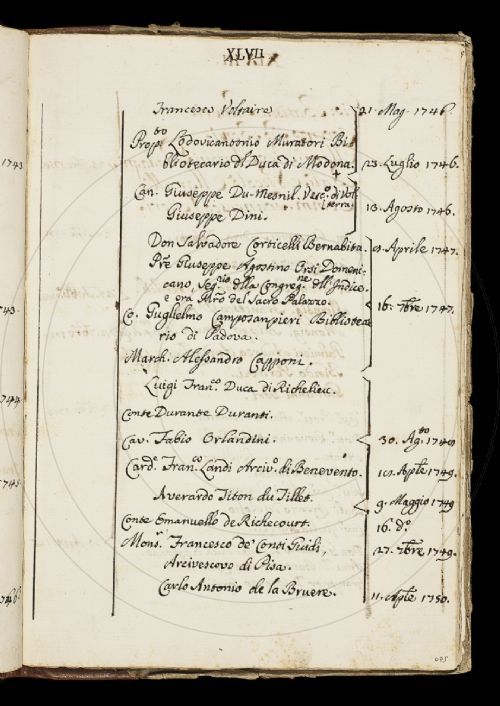 XLVII
Francesco Voltaire 21. Mag. 1746.
Prop.to Lodovicantonio Muratori Bi-
bliotecario d. Duca di Modona. 23. Luglio 1746.
1743
Can. Giuseppe Du-Mesnil. Vesc.o di Vol-
terra
Giuseppe Dini. 13. Agosto 1746.
Don Salvadore Corticelli Bernabita. Aprile 1747.
Pre Giuseppe Agostino Orsi Domeni-
cano, Seg.rio dlla Congreg.ne dll' Indice,
e ora Mro del Sacro Palazzo. 16. 7bre 1747.
Co. Guglielmo Camposanpieri Bibliotea-
rio di Padova.
March. Alessandro Capponi.
Luigi Fran.co Duca di Richelieu.
1744
Conte Durante Duranti.
Cav. Fabio Orlandini. 30. Ag.to 1749
Card.e Fran.co Landi Arciv.o di Benevento. Aple 1749.
1745
Averardo Titon du Tillet. 9. Maggio 1749
Conte Emanuello de Richecourt. 16. d.o
Mons.r Francesco de' Conti Guidi, 27. 7bre 1749.
Arcivescovo di Pisa.
Carlo Antonio de la Bruere. 11. Aple 1750.
1746